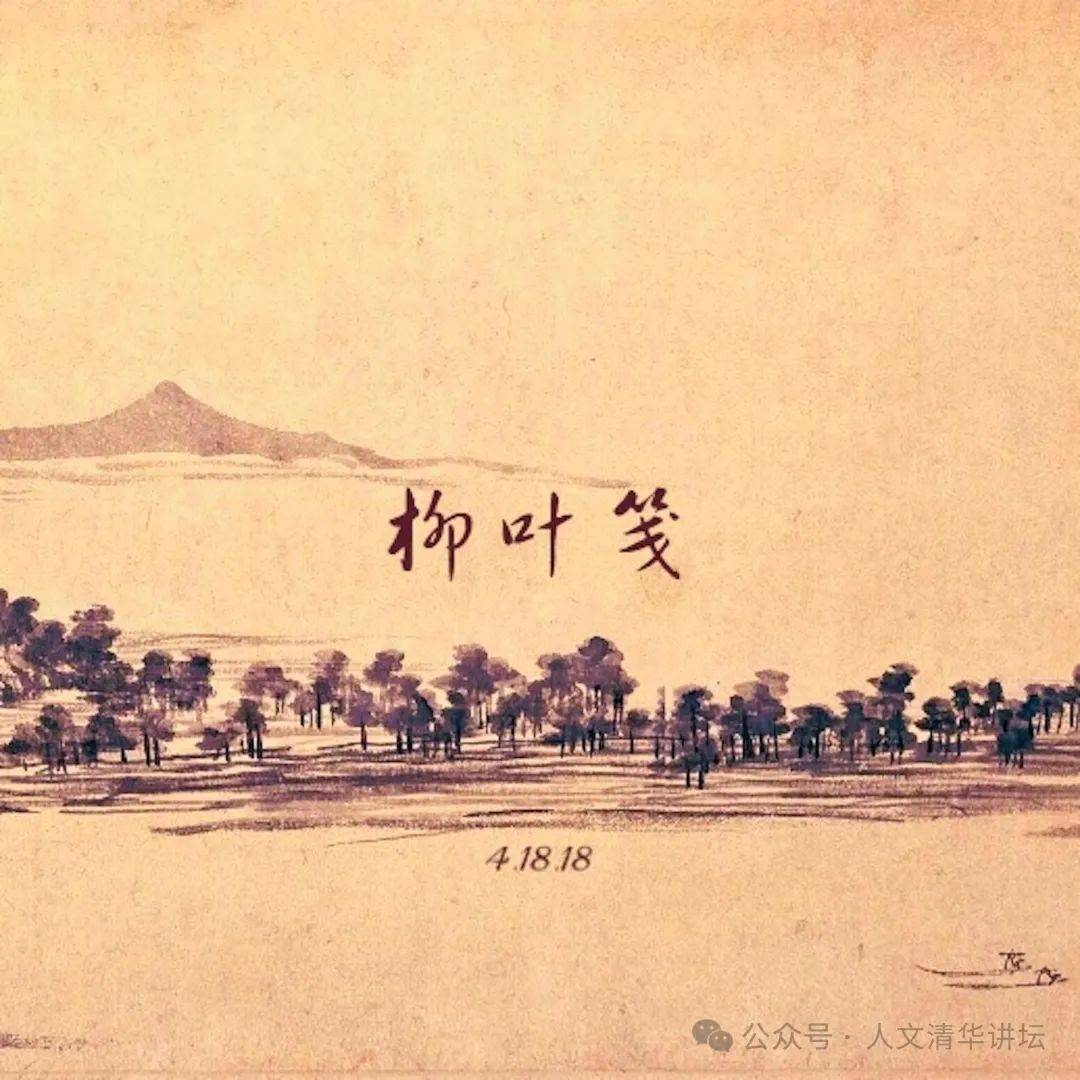 柳叶笺
4.18.18
公众号·人文清华讲坛